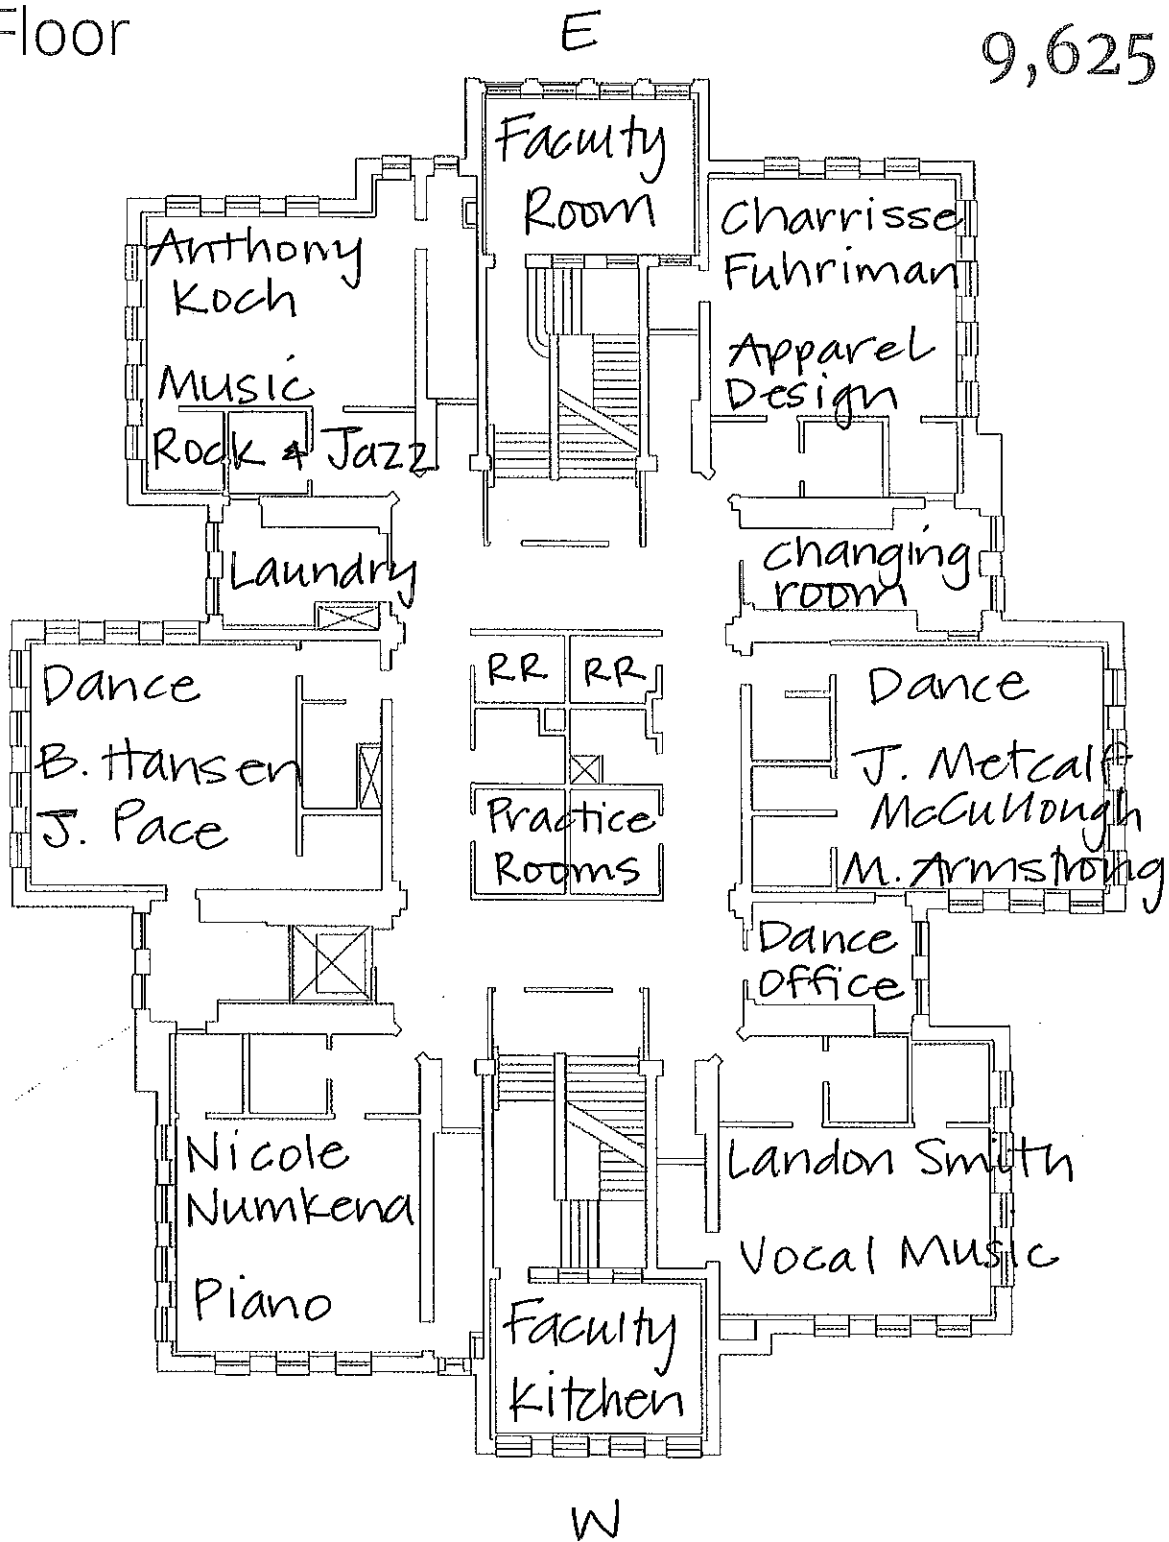 Floor
9,625
E
Faculty
Room
Anthony
Koch
Music
Rock & Jazz
Charrisse
Fuhriman
Apparel
Design
Laundry
changing
room
Dance
B. Hansen
J. Pace
RR RR
Practice
Rooms
Dance
J. Metcalf
McCullough
M. Armstrong
Dance
Office
Nicole
Numkena
Piano
Landon Smith
Vocal Music
Faculty
Kitchen
W